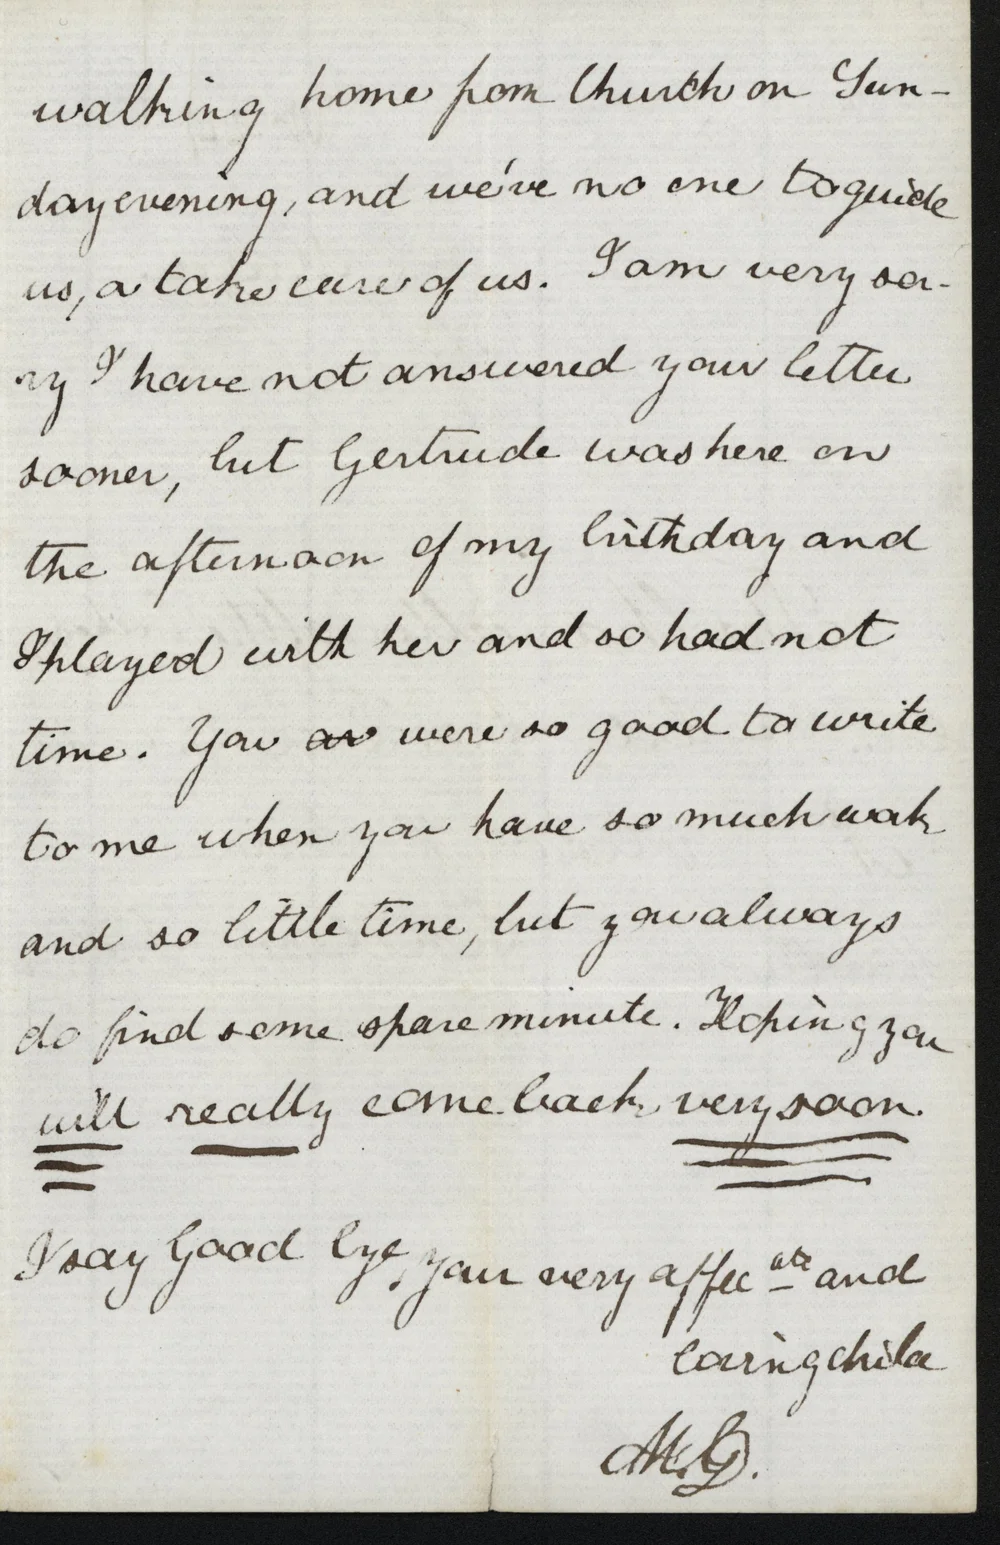 walking home from Church on Sun-
day evening, and we've no one to guide
us, or take care of us. I am very sor-
ry I have not answered your letter
sooner, but Gertrude was here on
the afternoon of my birthday and
I played with her and so had not
time. You are were so good to write
to me when you have so much work
and so little time, but you always
do find some spare minute. Hoping you
will really come back very soon.
I say Good bye, your very affec ate and
loving child